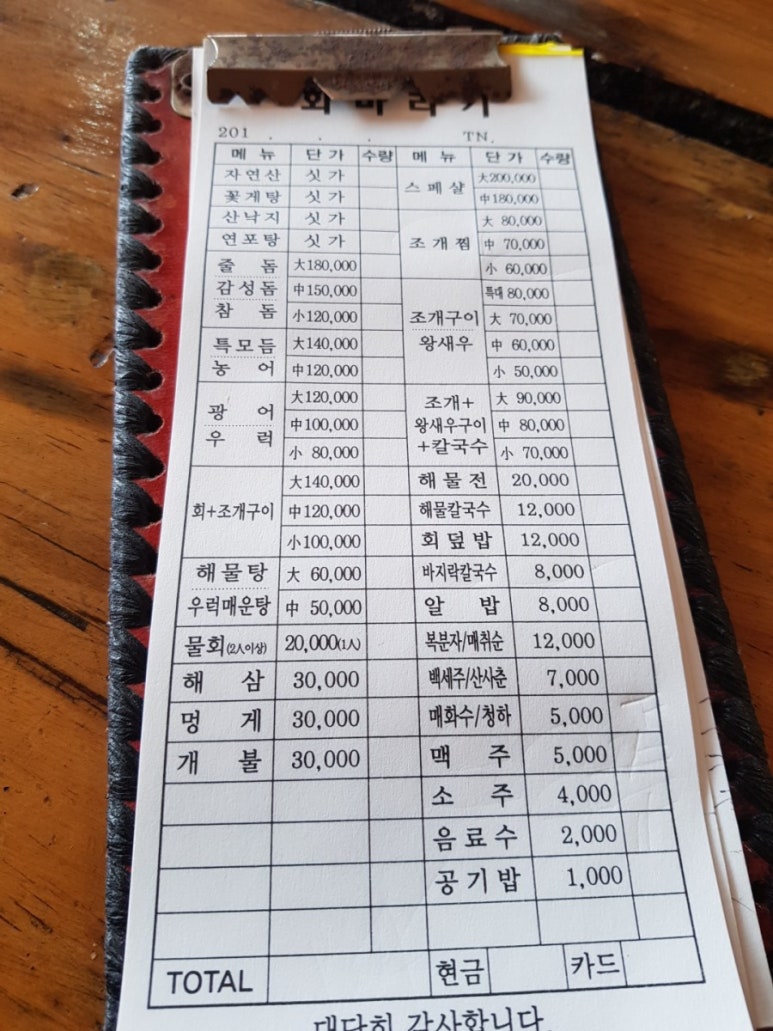 회 바 라 기
201 . . . TN.
메 뉴 단 가 수량 메 뉴 단 가 수량
자연산 싯 가 스페샬 大200,000
꽃게탕 싯 가 中180,000
산낙지 싯 가 조개찜 大 80,000
연포탕 싯 가 中 70,000
줄 돔 大180,000 小 60,000
감성돔 中150,000 조개구이 특대 80,000
참 돔 小120,000 왕새우 大 70,000
특모듬 大140,000 中 60,000
농 어 中120,000 小 50,000
광 어 大120,000 조개+ 大 90,000
우 럭 中100,000 왕새우구이 中 80,000
小 80,000 +칼국수 小 70,000
회+조개구이 大140,000 해물전 20,000
中120,000 해물칼국수 12,000
小100,000 회덮밥 12,000
해물탕 大 60,000 바지락칼국수 8,000
우럭매운탕 中 50,000 알 밥 8,000
물회(2人이상) 20,000(1人) 복분자/매취순 12,000
해 삼 30,000 백세주/산사춘 7,000
멍 게 30,000 매화수/청하 5,000
개 불 30,000 맥 주 5,000
소 주 4,000
음료수 2,000
공기밥 1,000
TOTAL 현금 카드
대단히 감사합니다.